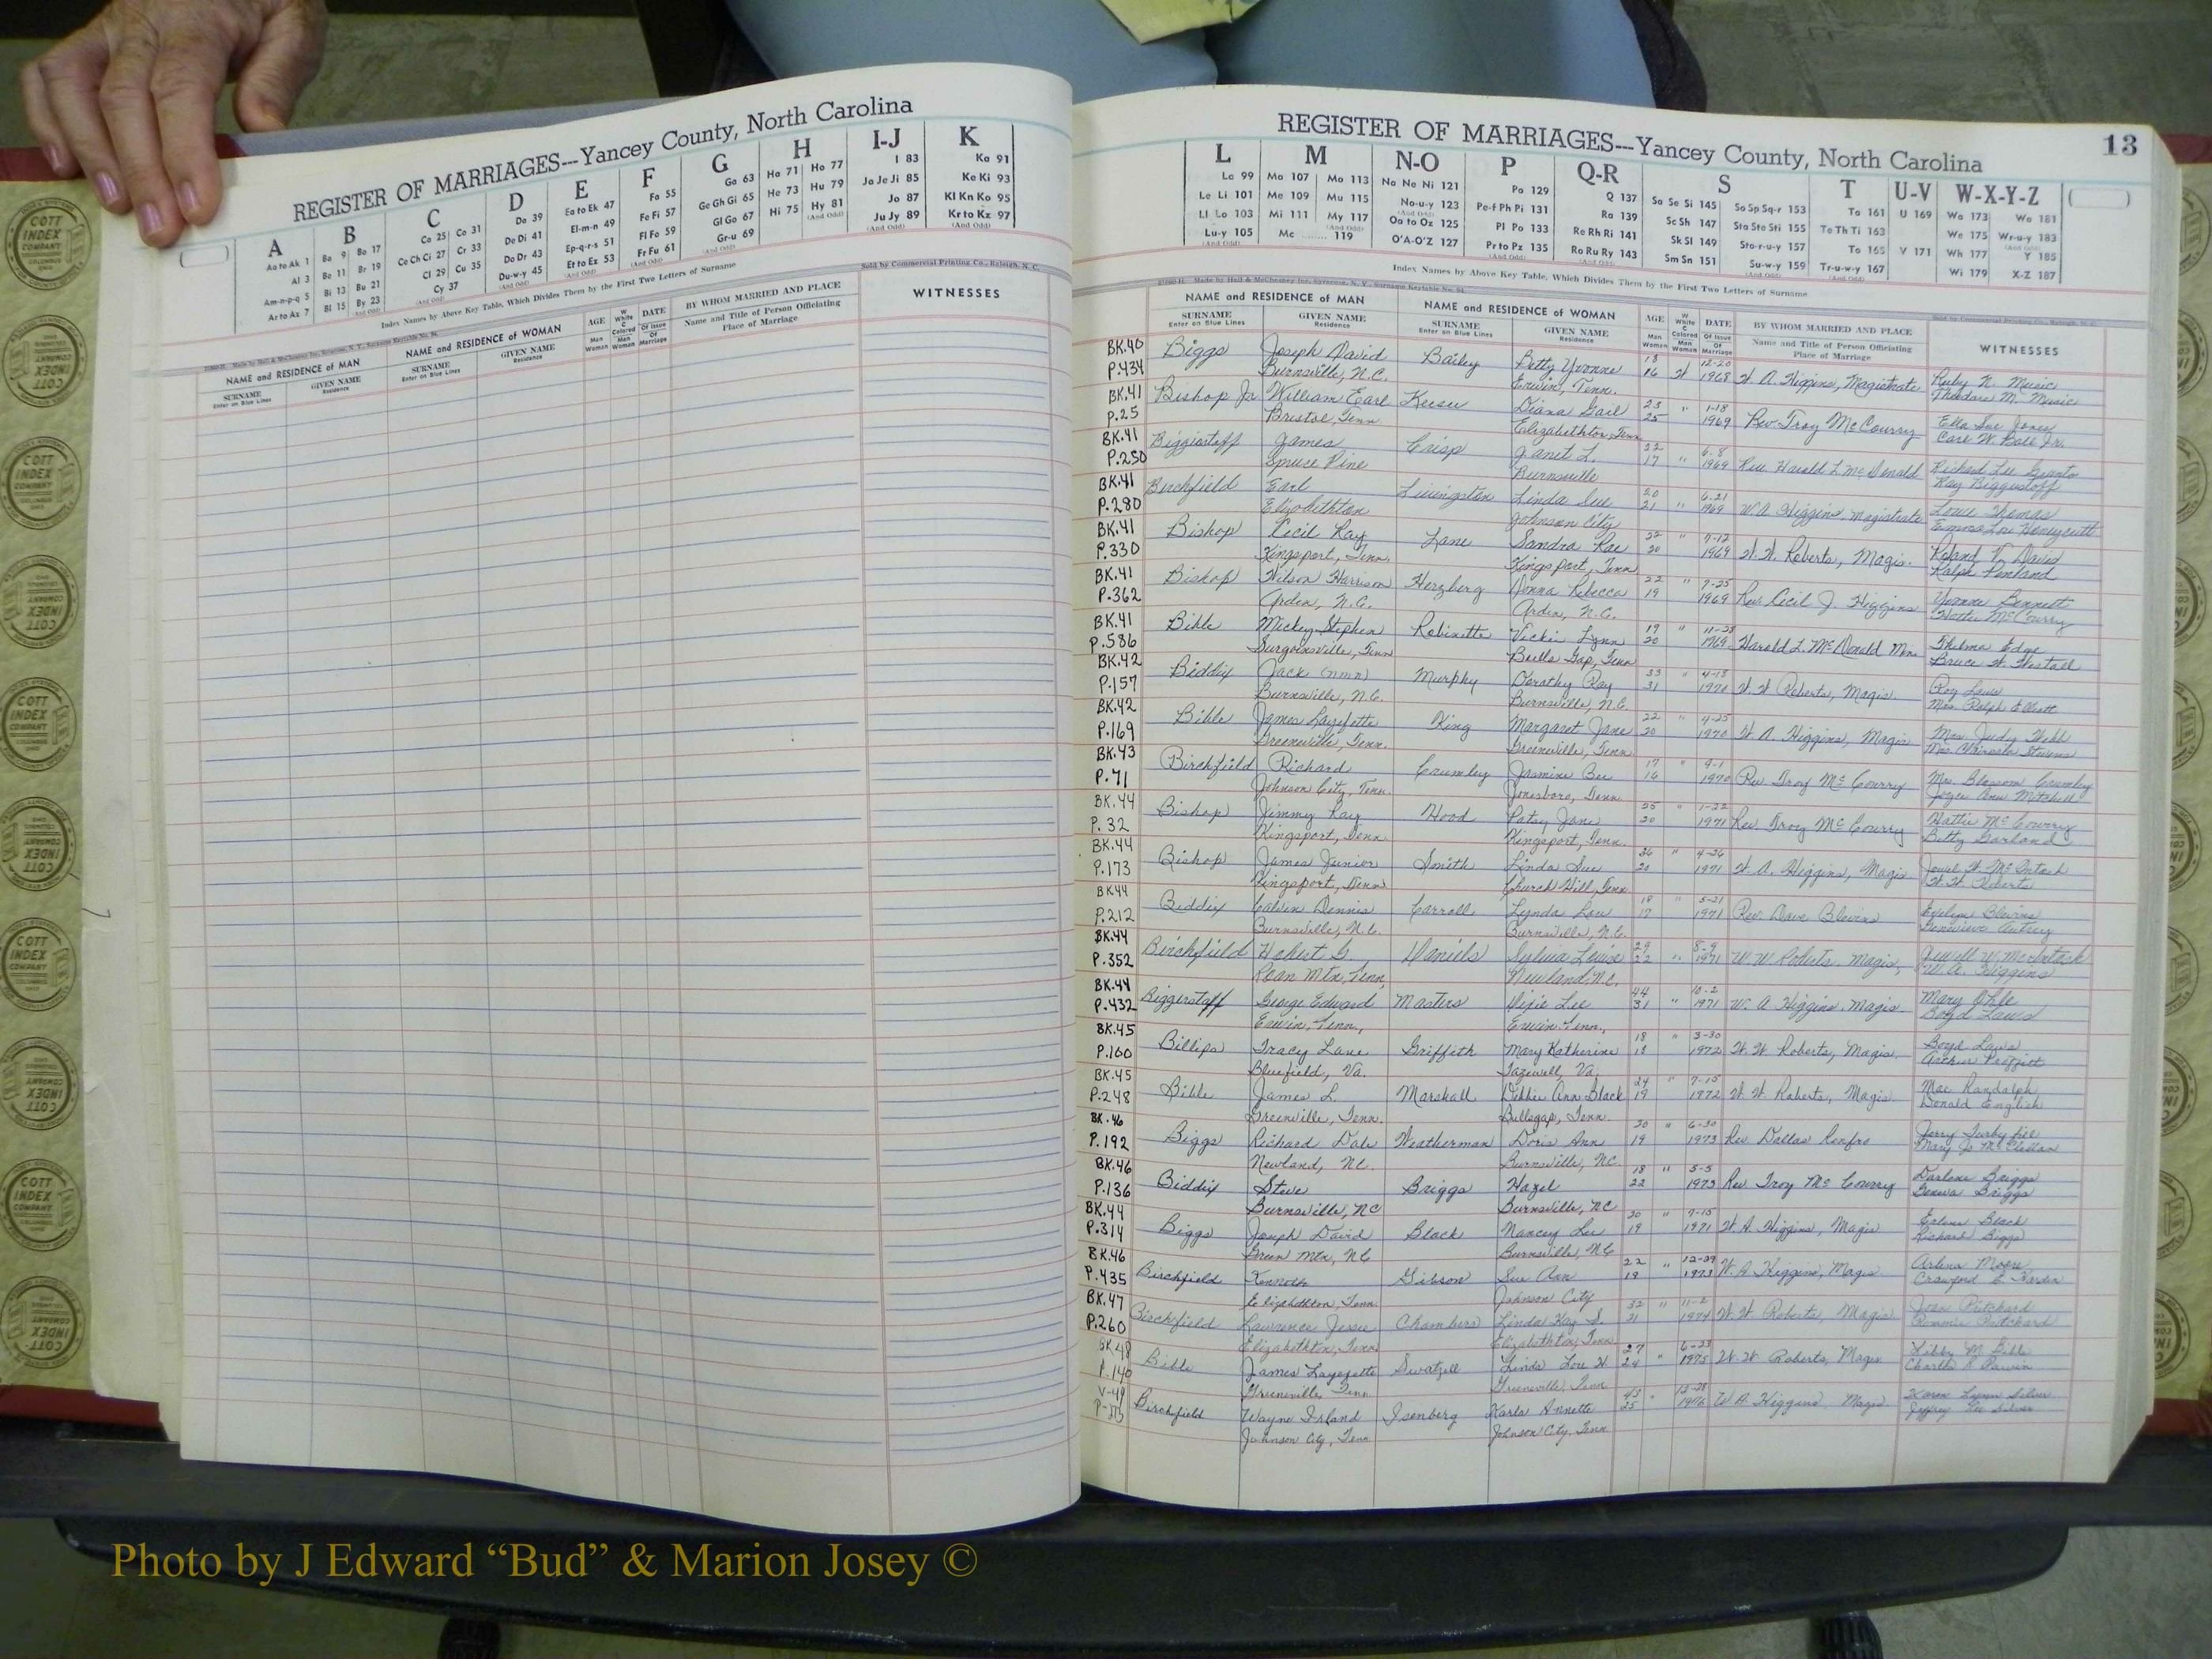 REGISTER OF MARRIAGES---Yancey County, North Carolina
A B C D E F G H I-J K
Aa to Ak 1 Ba 9 Bo 17 Ca 25 Co 31 Da 39 Ea to Ek 47 Fa 55 Ga 63 Ha 71 Ho 77 I 83 Ka 91
Al 3 Be 11 Br 19 Ce Ch Ci 27 Cr 33 De Di 41 El-m-n 49 Fe Fi 57 Ge Gh Gi 65 He 73 Hu 79 Ja Je Ji 85 Ke Ki 93
Am-n-p-q 5 Bi 13 Bu 21 Cl 29 Cu 35 Do Dr 43 Ep-q-r-s 51 Fl Fo 59 Gl Go 67 Hi 75 Hy 81 Jo 87 Kl Kn Ko 95
Ar to Az 7 Bl 15 By 23 Cy 37 Du-w-y 45 Et to Ez 53 Fr Fu 61 Gr-u 69 Ju Jy 89 Kr to Kz 97
Index Names by Above Key Table, Which Divides Them by the First Two Letters of Surname
Sold by Commercial Printing Co., Raleigh, N. C.
NAME and RESIDENCE of MAN NAME and RESIDENCE of WOMAN AGE DATE BY WHOM MARRIED AND PLACE WITNESSES
SURNAME GIVEN NAME SURNAME GIVEN NAME Name and Title of Person Officiating
Enter on Blue Lines Residence Enter on Blue Lines Residence Place of Marriage
REGISTER OF MARRIAGES---Yancey County, North Carolina 13
L M N-O P Q-R S T U-V W-X-Y-Z
La 99 Ma 107 Mo 113 Na Ne Ni 121 Pa 129 Q 137 Sa Se Si 145 So Sp Sq-r 153 Ta 161 U 169 Wa 173 Wo 181
Le Li 101 Me 109 Mu 115 No-u-y 123 Pe-f Ph Pi 131 Ra 139 Sc Sh 147 Sta Ste Sti 155 Te Th Ti 163 We 175 Wr-u-y 183
Ll Lo 103 Mi 111 My 117 Oa to Oz 125 Pl Po 133 Re Rh Ri 141 Sk Sl 149 Sto-r-u-y 157 To 165 V 171 Wh 177 Y 185
Lu-y 105 Mc 119 O'A-O'Z 127 Pr to Pz 135 Ro Ru Ry 143 Sm Sn 151 Su-w-y 159 Tr-u-w-y 167 Wi 179 X-Z 187
Index Names by Above Key Table, Which Divides Them by the First Two Letters of Surname
NAME and RESIDENCE of MAN NAME and RESIDENCE of WOMAN AGE DATE BY WHOM MARRIED AND PLACE WITNESSES
SURNAME GIVEN NAME SURNAME GIVEN NAME Name and Title of Person Officiating
Enter on Blue Lines Residence Enter on Blue Lines Residence Place of Marriage
BK.40 Biggs Joseph David Bailey Betty Yvonne 18 12-20 Ruby N. Music
P.434 Burnsville, N.C. Erwin, Tenn. 16 W 1968 W. A. Higgins, Magistrate Theodore M. Music
BK.41 Bishop Jr William Earl Diana Gail 23 " 1-18 Ella Sue Jones
P.25 Bristol, Tenn Elizabethton, Tenn 25 1969 Rev. Troy McCourry Carl W. Ball Jr.
BK.41 Biggerstaff James Crisp Janet L. 22 6-8
P.250 Spruce Pine Burnsville 17 " 1969 Rev. Harold L. McDonald Ray Biggerstaff
BK.41 Birchfield Earl Livingston Linda Sue 20 6.21 Thomas
P.280 Elizabethton Johnson City 21 " 1969 W.A. Higgins, Magistrate Emma Lou Honeycutt
BK.41 Bishop Cecil Ray Lane Sandra Rae 22 " 7-12 Roland V. Davis
P.330 Kingsport, Tenn. Kingsport, Tenn 20 1969 W. W. Roberts, Magis. Ralph Penland
BK.41 Bishop Wilson Harrison Herzberg Donna Rebecca 22 " 7-25 Yvonne Bennett
P.362 Arden, N.C. Arden, N.C. 19 1969 Rev. Cecil J. Higgins Hattie McCourry
BK.41 Bible Mickey Stephen Robinette Vickie Lynn 19 " 11-28 Thelma Edge
P.586 Surgoinsville, Tenn Bulls Gap, Tenn 20 1969 Harold L. McDonald Min. Bruce W. Westall
BK.42 Biddix Jack (nmn) Murphy Dorothy Ray 33 " 4-18 Roy Laws
P.157 Burnsville, N.C. Burnsville, N.C. 31 1970 W. W. Roberts, Magis. Mrs. Ralph Elliott
BK.42 Bible James Lafayette King Margaret Jane 22 " 4-25 Mrs. Judy Webb
P.169 Greeneville, Tenn. Greeneville, Tenn 20 1970 W. A. Higgins, Magis
BK.43 Birchfield Richard Crumley Jasmine Bee 17 " 9-1 Mrs. Blossom Crumley
P.71 Johnson City, Tenn. Jonesboro, Tenn. 16 1970 Rev. Troy McCourry Joyce Ann Mitchell
BK.44 Bishop Jimmy Ray Hood Patsy Jane 25 " 1-22 Hattie McCourry
P.32 Kingsport, Tenn Kingsport, Tenn. 20 1971 Rev. Troy McCourry Betty Garland
BK.44 Bishop James Junior Smith Linda Sue 36 " 4-24 Jewel W. McIntosh
P.173 Kingsport, Tenn Church Hill, Tenn 20 1971 W. A. Higgins, Magis W. W. Roberts
BK44 Biddix Calvin Dennis Carroll Lynda Lou 18 " 5-21 Evelyn Blevins
P.212 Burnsville, N.C. Burnsville, N.C. 17 1971 Rev. Dave Blevins Genevieve Autrey
BK.44 Birchfield Hobert G. Daniels Sylvia Louise 29 8-9 Jewell W. McIntosh
P.352 Roan Mtn, Tenn, Newland, N.C. 22 " 1971 W.W. Roberts, Magis, W.A. Higgins
BK.44 Biggerstaff George Edward Masters Dixie Lee 44 10-2 Mary Ohle
P.432 Erwin, Tenn., Erwin, Tenn., 31 " 1971 W. A Higgins, Magis. Boyd Laws
BK.45 Billips Tracy Lane Griffith Mary Katherine 18 " 3-30 Boyd Laws
P.160 Bluefield, Va. Tazewell, Va. 18 1972 W. W. Roberts, Magis. Arthur Proffitt
BK.45 Bible James L. Marshall Debbie Ann Black 24 " 7-15 Mae Randolph
P.248 Greenville, Tenn. Bullsgap, Tenn. 19 1972 W. W. Roberts, Magis. Donald English
BK.46 Biggs Richard Dale Weatherman Doris Ann 20 " 6-30 Jerry Turbyfill
P.192 Newland, NC. Burnsville, NC. 19 1973 Rev Dallas Renfro Mary Jo McClellan
BK.46 Biddix Steve Briggs Hazel 18 " 5-5 Darlene Briggs
P.136 Burnsville, NC Burnsville, NC 22 1973 Rev Troy McCourry Geneva Briggs
BK.44 Biggs Joseph David Black Nancy Lee 20 " 7-15 Erlene Black
P.314 Green Mtn, NC Burnsville, NC 19 1971 W. A Higgins, Magis Richard Biggs
BK.46 Birchfield Kenneth Gibson Sue Ann 22 " 12-29 Arlena Moore
P.435 Elizabethton, Tenn. Johnson City 19 1973 W. A Higgins, Magis Crawford C. Hardin
BK.47 Birchfield Lawrence Jesse Chambers Linda Kay S. 32 " 11-2 Joan Pritchard
P.260 Elizabethton, Tenn. Elizabethton, Tenn 21 1974 W. W. Roberts, Magis Ronnie Pritchard
BK 48 Bible James Lafayette Swatzell Linda Lou H. 27 6-23 Libby M. Bible
P.140 Greeneville, Tenn Greeneville, Tenn 24 " 1975 W. W. Roberts, Magis
V-49 Birchfield Wayne Irland Isenberg Karla Annette 43 " Karen Lynn Silver
Johnson City, Tenn Johnson City, Tenn 25 1976 W A Higgins, Magis Jeffrey Silver
COTT INDEX COMPANY COLUMBUS OHIO
Photo by J Edward “Bud” & Marion Josey ©